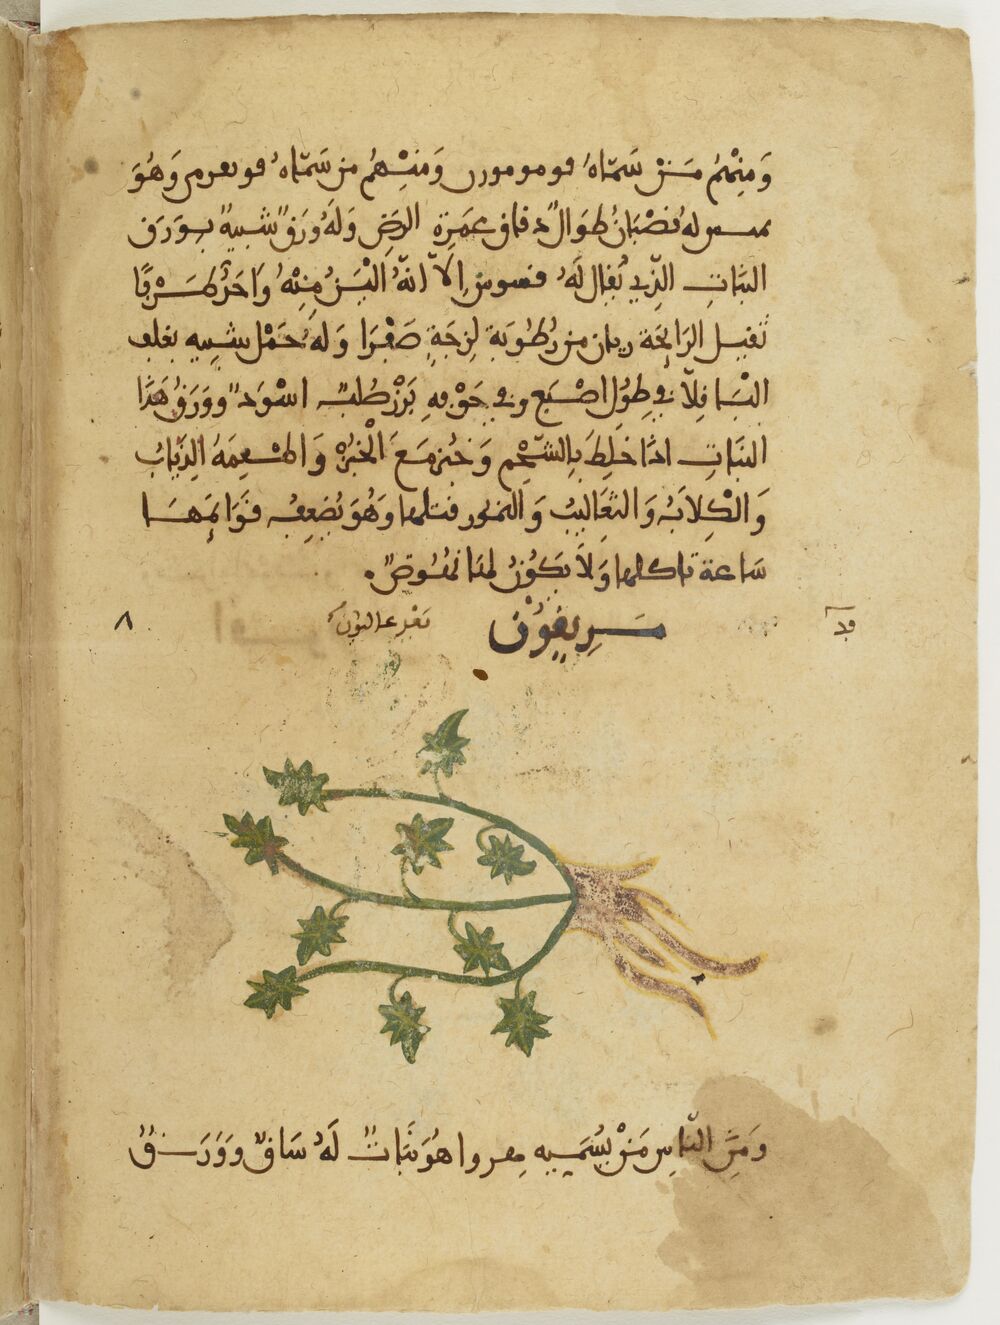 وَمِنْهُمُ مَنْ سَمَّاهُ فومومورن وَمَنِهُمُ من سَمَّاهُ وَهُوَ
لهُ فُضْبَانٌ طِوَالٌ دفاق عسرة الرض وَلَهُ وَرَقٌ شَبِيهٌ بِوَرَقِ
النبَاتِ الذِّي يُقالُ لَهُ قسوس إلاّ أنّهُ أَلْيَنُ مِنْهُ وَأَحَدُّ طَرَفًا
ثقيل الرَايِحَة ريان من رُطُوبَة لزِجَةٍ صَفْرَا وَلَهُ حَمْل شبيه بغلف
البَاقِلَّا في طُولِ اصْبَع وفي جَوْفهِ بَزْر صُلْب اسْوَد وَوَرَقُ هَذا
النبَاتِ اذَا خُلِطَ بِالشّحْمِ وَخُبزَ مَعَ الْخُبْزِ وَأطْعِمَهُ الذِّيَابُ
وَالْكِلَابُ وَالثعَالِبُ وَالنمور قتلها وَهُوَ يُضعِفُ قوَايِمَهَا
سَاعة تاكلها وَلَا يَكُونُ لهَا نُهُوضٌ.
سَرِيفُوُن
٨
وَمِنَ النَّاسِ مَنْ يُسَمِيه هُوَ نَبَاتٌ لَهُ سَاقٌ وَوَرَقٌ